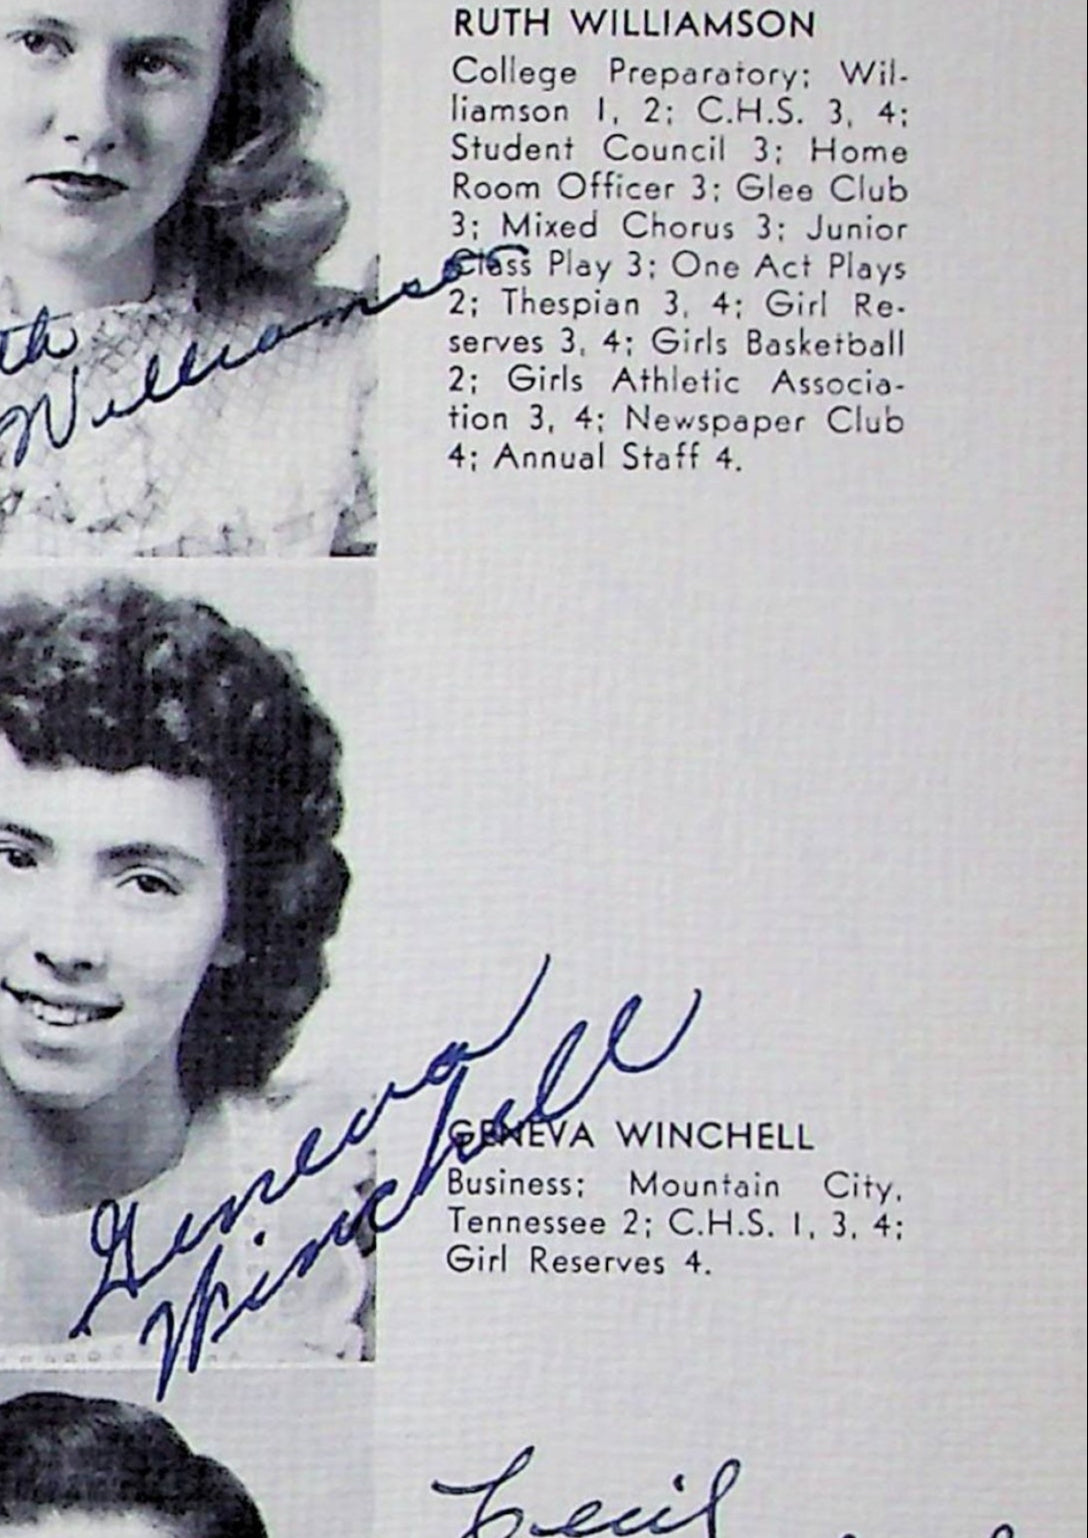 RUTH WILLIAMSON
College Preparatory; Wil-
liamson 1, 2; C.H.S. 3, 4;
Student Council 3; Home
Room Officer 3; Glee Club
3; Mixed Chorus 3; Junior
Class Play 3; One Act Plays
2; Thespian 3, 4; Girl Re-
serves 3, 4; Girls Basketball
2; Girls Athletic Associa-
tion 3, 4; Newspaper Club
4; Annual Staff 4.
Williamson
Geneva
Winchell
GENEVA WINCHELL
Business; Mountain City,
Tennessee 2; C.H.S. 1, 3, 4;
Girl Reserves 4.
Cecil